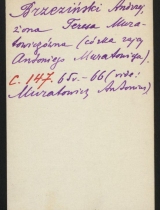 Brzeziński Andrzej
żona Teresa Mura-
towiczówna (córka
Antoniego Muratowicza).
C. 147. 65v.-66 (vide:
Muratowicz Antoni)